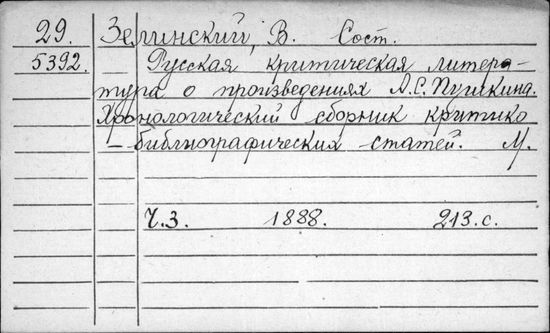 29. Зелинский, В. Сост.
5392. Русская критическая литера-
тура о произведениях А.С. Пушкина.
Хронологический сборник критико
-библиографических статей. М.
Ч.3. 1888. 213.с.